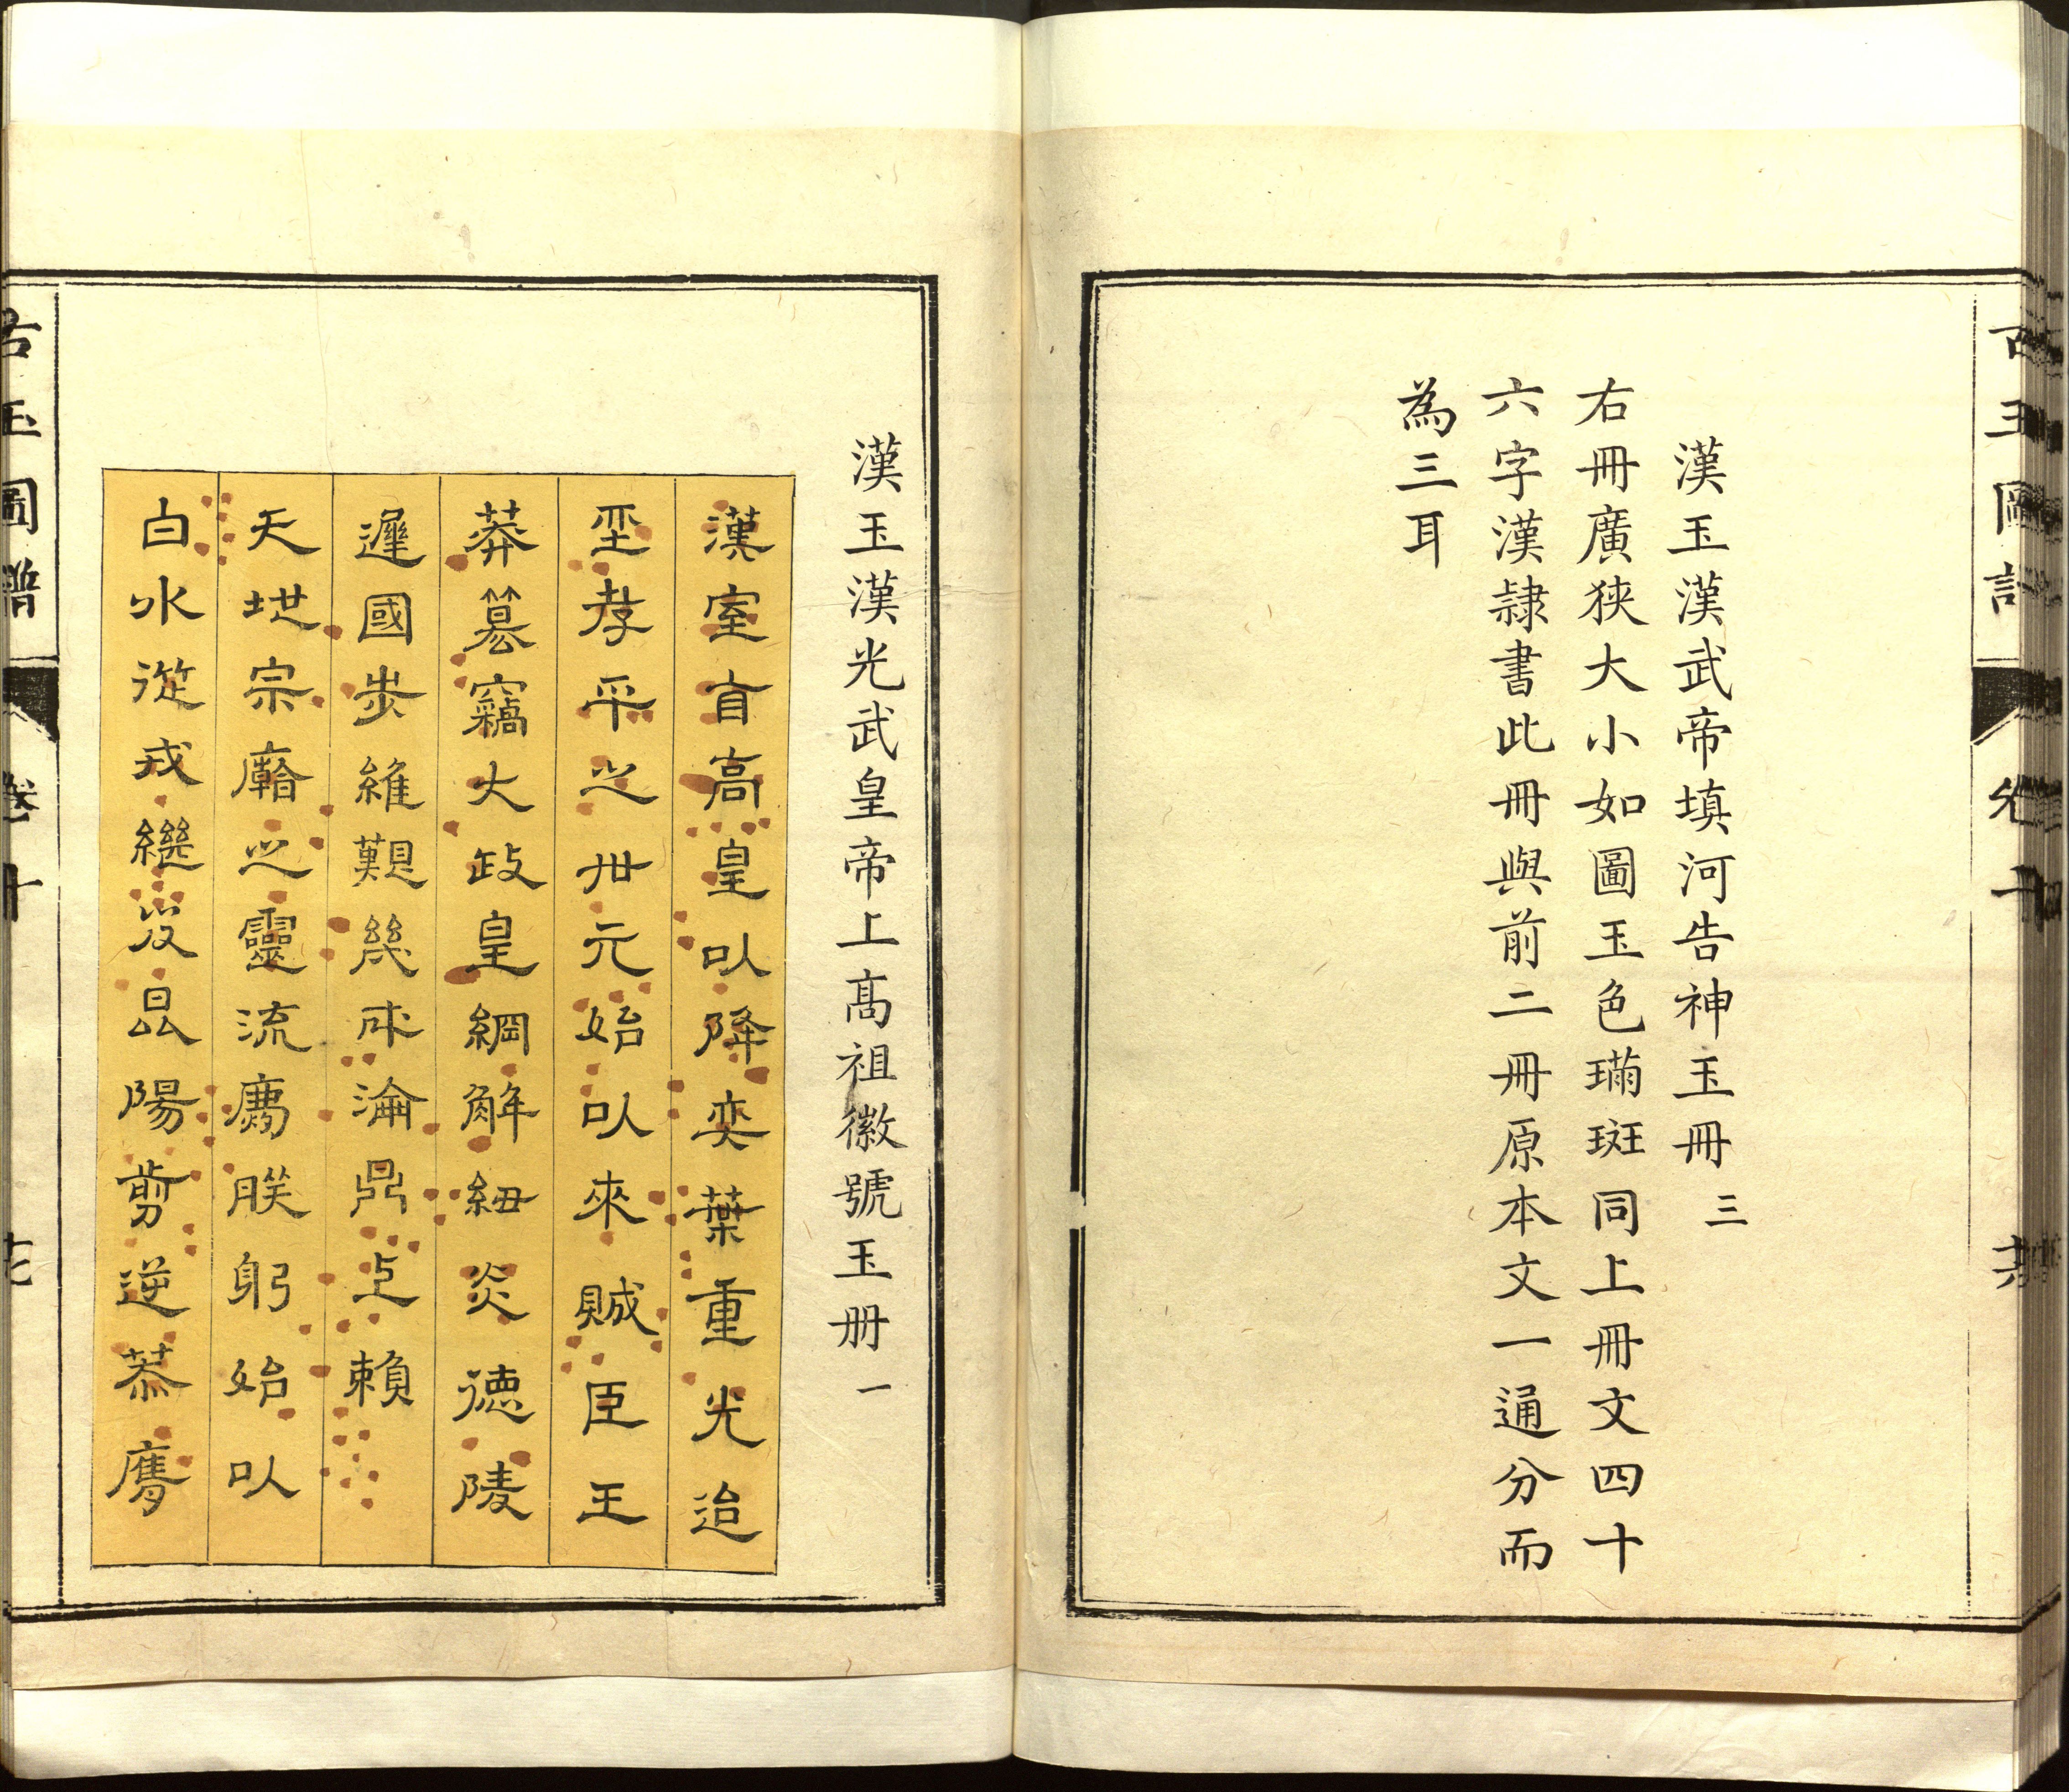 漢玉漢武帝填河告神玉冊三
右冊廣狹大小如圖玉色璊斑同上冊文四十
六字漢隷書此冊與前二冊原本文一通分而
為三耳
漢玉漢光武皇帝上髙祖徽號玉册一
漢室自高皇以降奕葉重光迨
至孝平之世元始以來賊臣王
莽篡竊大政皇綱解紐炎德陵
遲國步維艱幾成淪鼎上賴
天地宗廟之靈流廕朕躬始以
白水從戎繼以昆陽剪逆恭膺
古玉圖譜 卷十